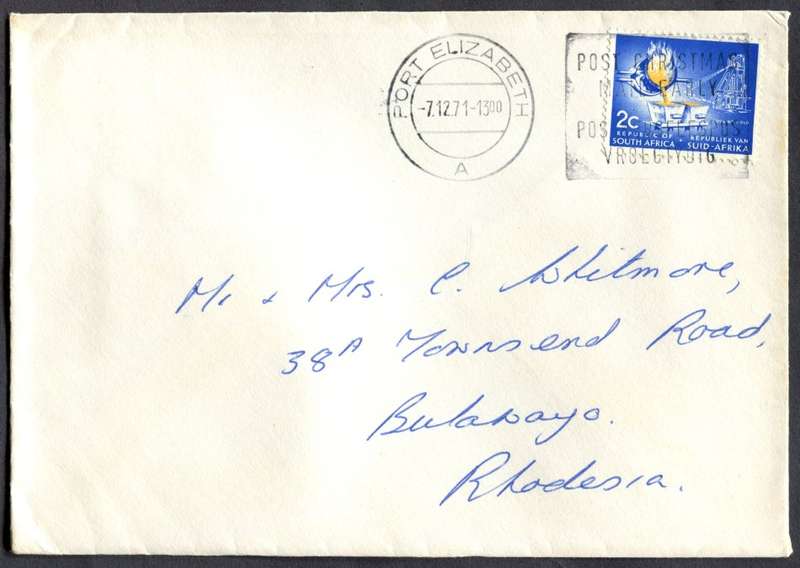 PORT ELIZABETH
-7.12.71-1300
A
POST CHRISTMAS
MAIL EARLY
POS
VROEGTYDIG
2c
REPUBLIC OF
SOUTH AFRICA
REPUBLIEK VAN
SUID-AFRIKA
Mr + Mrs. C. Whitmore,
38A Townsend Road,
Bulawayo.
Rhodesia.